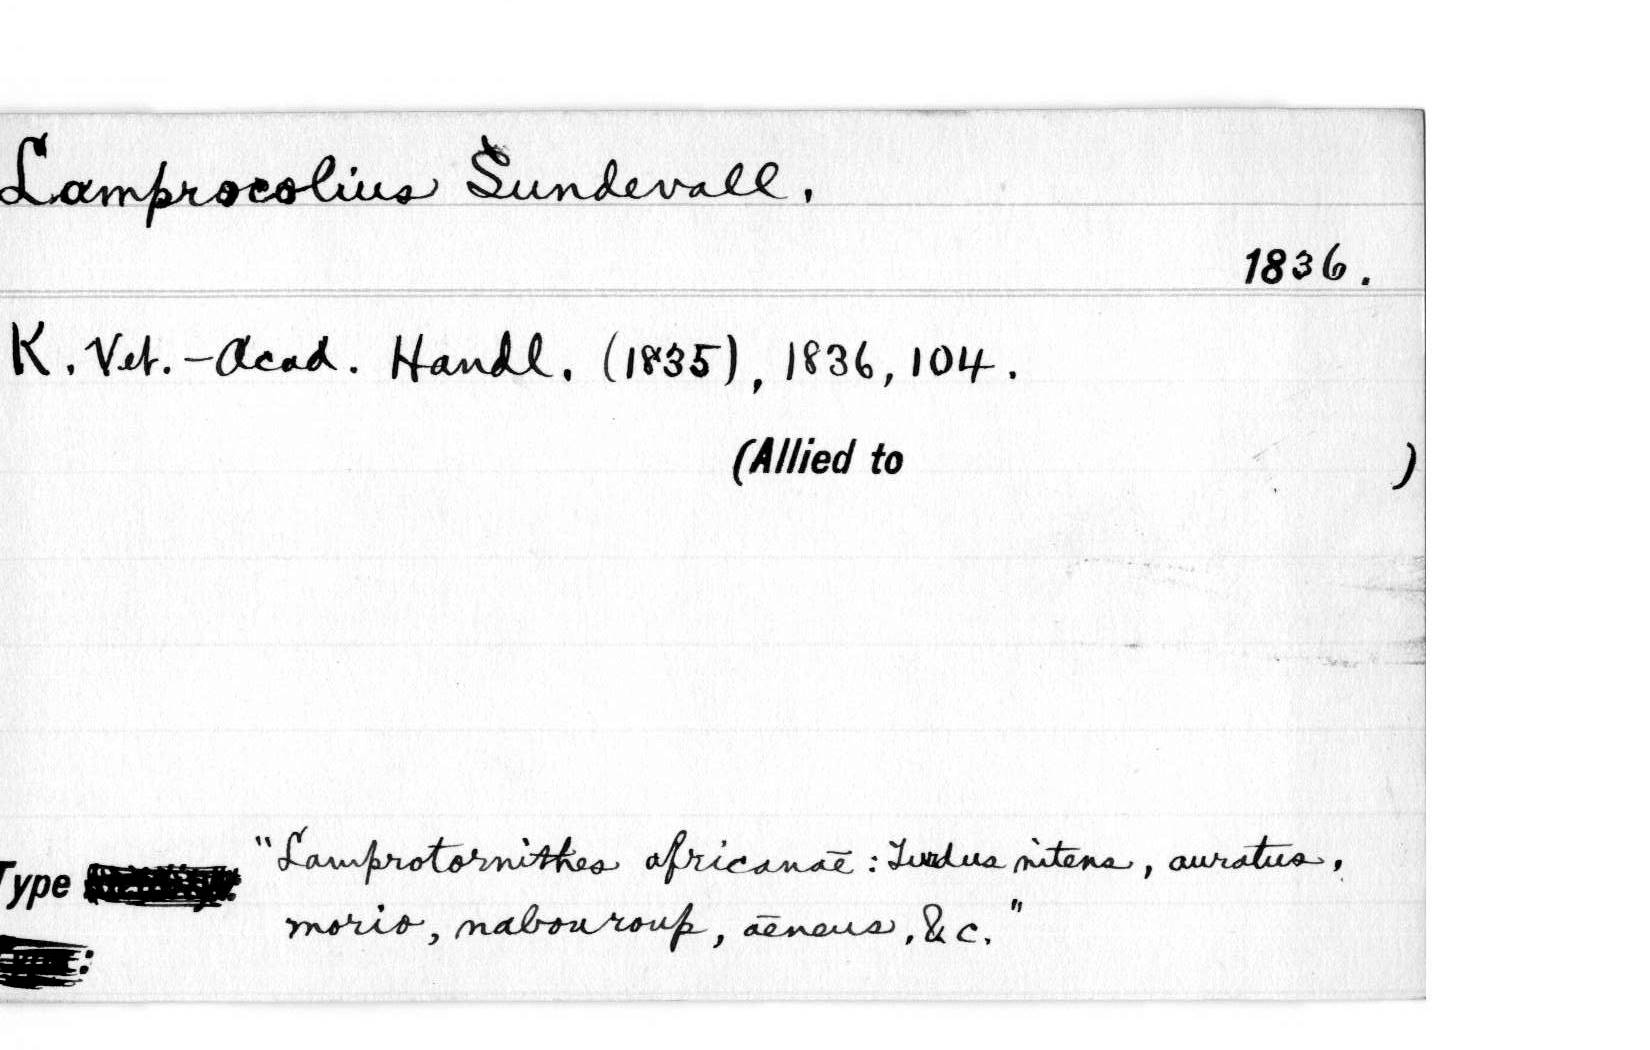 Lamprocolius Sundevall.
1836.
K. Vet.-Acad. Handl. (1835), 1836, 104.
(Allied to )
Type "Lamprotornithes africanaē: Turdus nitens, auratus,
morio, nabouroup, aēneus, &c."
: